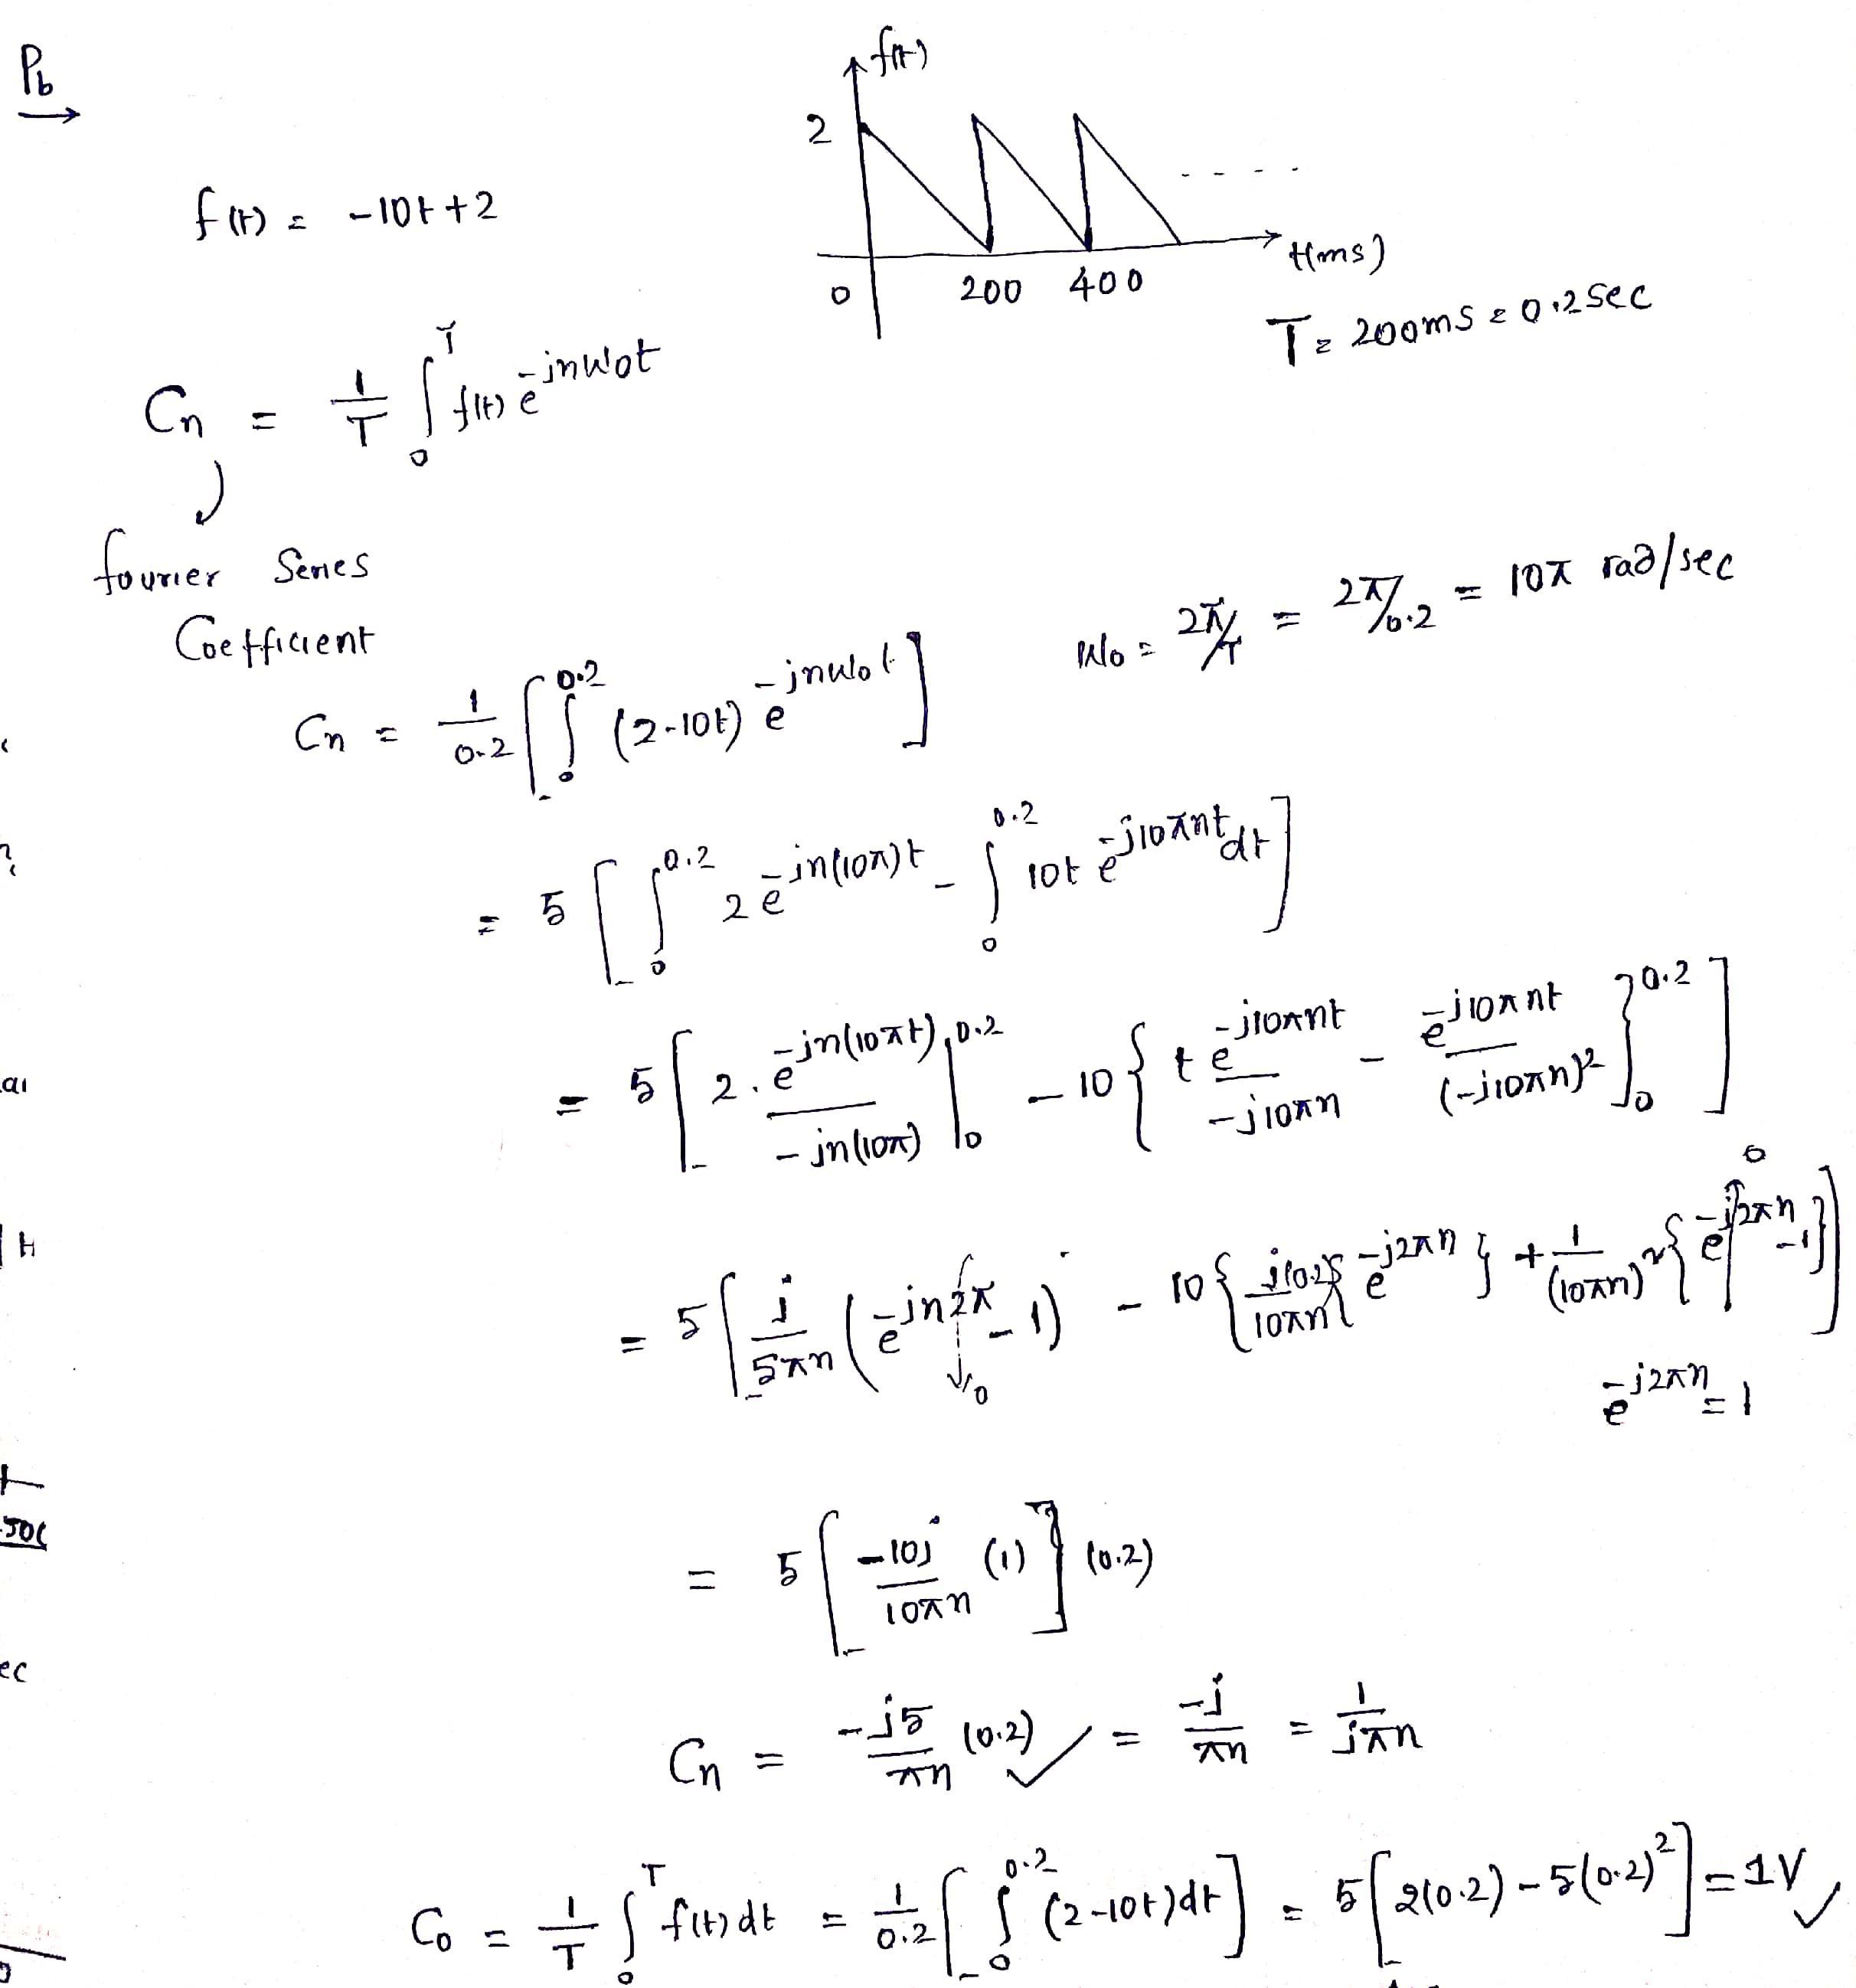 Pb
f(t)
2
f(t) = -10t+2
0 200 400 t(ms)
T = 200ms = 0.2sec
Cn = 1/T ∫₀ᵀ f(t) e^{-jnω₀t}
fourier Series
Coefficient
ω₀ = 2π/T = 2π/0.2 = 10π rad/sec
Cn = 1/0.2 [ ∫₀^{0.2} (2-10t) e^{-jnω₀t} ]
= 5 [ ∫₀^{0.2} 2 e^{-jn(10π)t} - ∫₀^{0.2} 10t e^{-j10πnt} dt ]
= 5 [ 2. e^{-jn(10πt)} / -jn(10π) |₀^{0.2} - 10 { t e^{-j10πnt} / -j10πn - e^{-j10πnt} / (-j10πn)² }₀^{0.2} ]
= 5 [ j/5πn ( e^{-jn2π} - 1 ) - 10 { j(0.2)/10πn { e^{-j2πn} } + 1/(10πn)² { e^{-j2πn} - 1 } } ]
0
0
e^{-j2πn} = 1
= 5 [ -10j/10πn (1) ] (0.2)
Cn = -j5/πn (0.2) ✓ = -j/πn = 1/jπn
C₀ = 1/T ∫₀ᵀ f(t) dt = 1/0.2 [ ∫₀^{0.2} (2-10t)dt ] = 5 [ 2(0.2) - 5(0.2)² ] = 1V ✓